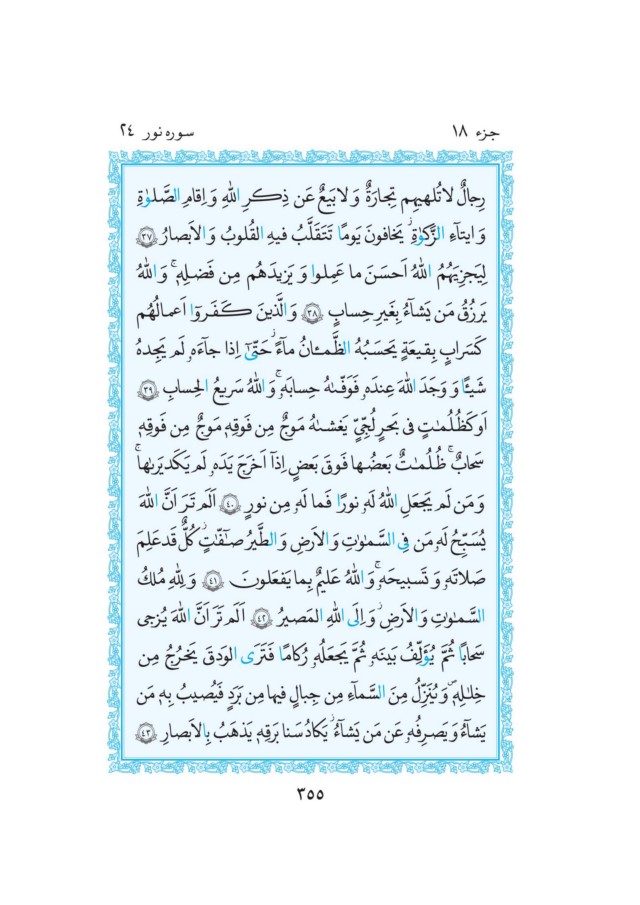 جزء ١٨
سوره نور ٢٤
رِجالٌ لاتُلهيهِم تِجارَةٌ وَ لابَيعٌ عَن ذِكرِ اللهِ وَ اِقامِ الصَّلوٰةِ
وَ ايتآءِ الزَّكوٰةِ ۙ يَخافونَ يَومًا تَتَقَلَّبُ فيهِ القُلوبُ وَ الاَبصارُ ﴿٣٧﴾
لِيَجزِيَهُمُ اللهُ اَحسَنَ ما عَمِلوا وَ يَزيدَهُم مِن فَضلِهٖ ۗ وَ اللهُ
يَرزُقُ مَن يَشآءُ بِغَيرِ حِسابٍ ﴿٣٨﴾ وَ الَّذينَ كَفَروٓا اَعمالُهُم
كَسَرابٍ بِقيعَةٍ يَحسَبُهُ الظَّمـٔانُ مآءً ۗ حَتّىٰٓ اِذا جآءَه‍ٗ لَم يَجِدهُ
شَيـًٔا وَ وَجَدَ اللهَ عِندَهٗ فَوَفّىٰهُ حِسابَهٗ ۗ وَ اللهُ سَريعُ الحِسابِ ﴿٣٩﴾
اَو كَظُلُمٰتٍ فى بَحرٍ لُجِّىٍّ يَغشىٰهُ مَوجٌ مِن فَوقِهٖ مَوجٌ مِن فَوقِهٖ
سَحابٌ ۚ ظُلُمٰتٌ بَعضُها فَوقَ بَعضٍ اِذآ اَخرَجَ يَدَهٗ لَم يَكَد يَرىٰها ۗ
وَ مَن لَم يَجعَلِ اللهُ لَهٗ نورًا فَما لَهٗ مِن نورٍ ﴿٤٠﴾ اَلَم تَرَ اَنَّ اللهَ
يُسَبِّحُ لَهٗ مَن فِى السَّمٰوٰتِ وَ الاَرضِ وَ الطَّيرُ صٰٓفّٰتٍ ۖ كُلٌّ قَد عَلِمَ
صَلاتَهٗ وَ تَسبيحَهٗ ۗ وَ اللهُ عَليمٌ بِما يَفعَلونَ ﴿٤١﴾ وَ لِلّٰهِ مُلكُ
السَّمٰوٰتِ وَ الاَرضِ ۖ وَ اِلَى اللهِ المَصيرُ ﴿٤٢﴾ اَلَم تَرَ اَنَّ اللهَ يُزجى
سَحابًا ثُمَّ يُؤَلِّفُ بَينَهٗ ثُمَّ يَجعَلُهٗ رُكامًا فَتَرَى الوَدقَ يَخرُجُ مِن
خِلٰلِهٖ وَ يُنَزِّلُ مِنَ السَّمآءِ مِن جِبالٍ فيها مِن بَرَدٍ فَيُصيبُ بِهٖ مَن
يَشآءُ وَ يَصرِفُهٗ عَن مَن يَشآءُ ۖ يَكادُ سَنا بَرقِهٖ يَذهَبُ بِالاَبصارِ ﴿٤٣﴾
٣٥٥